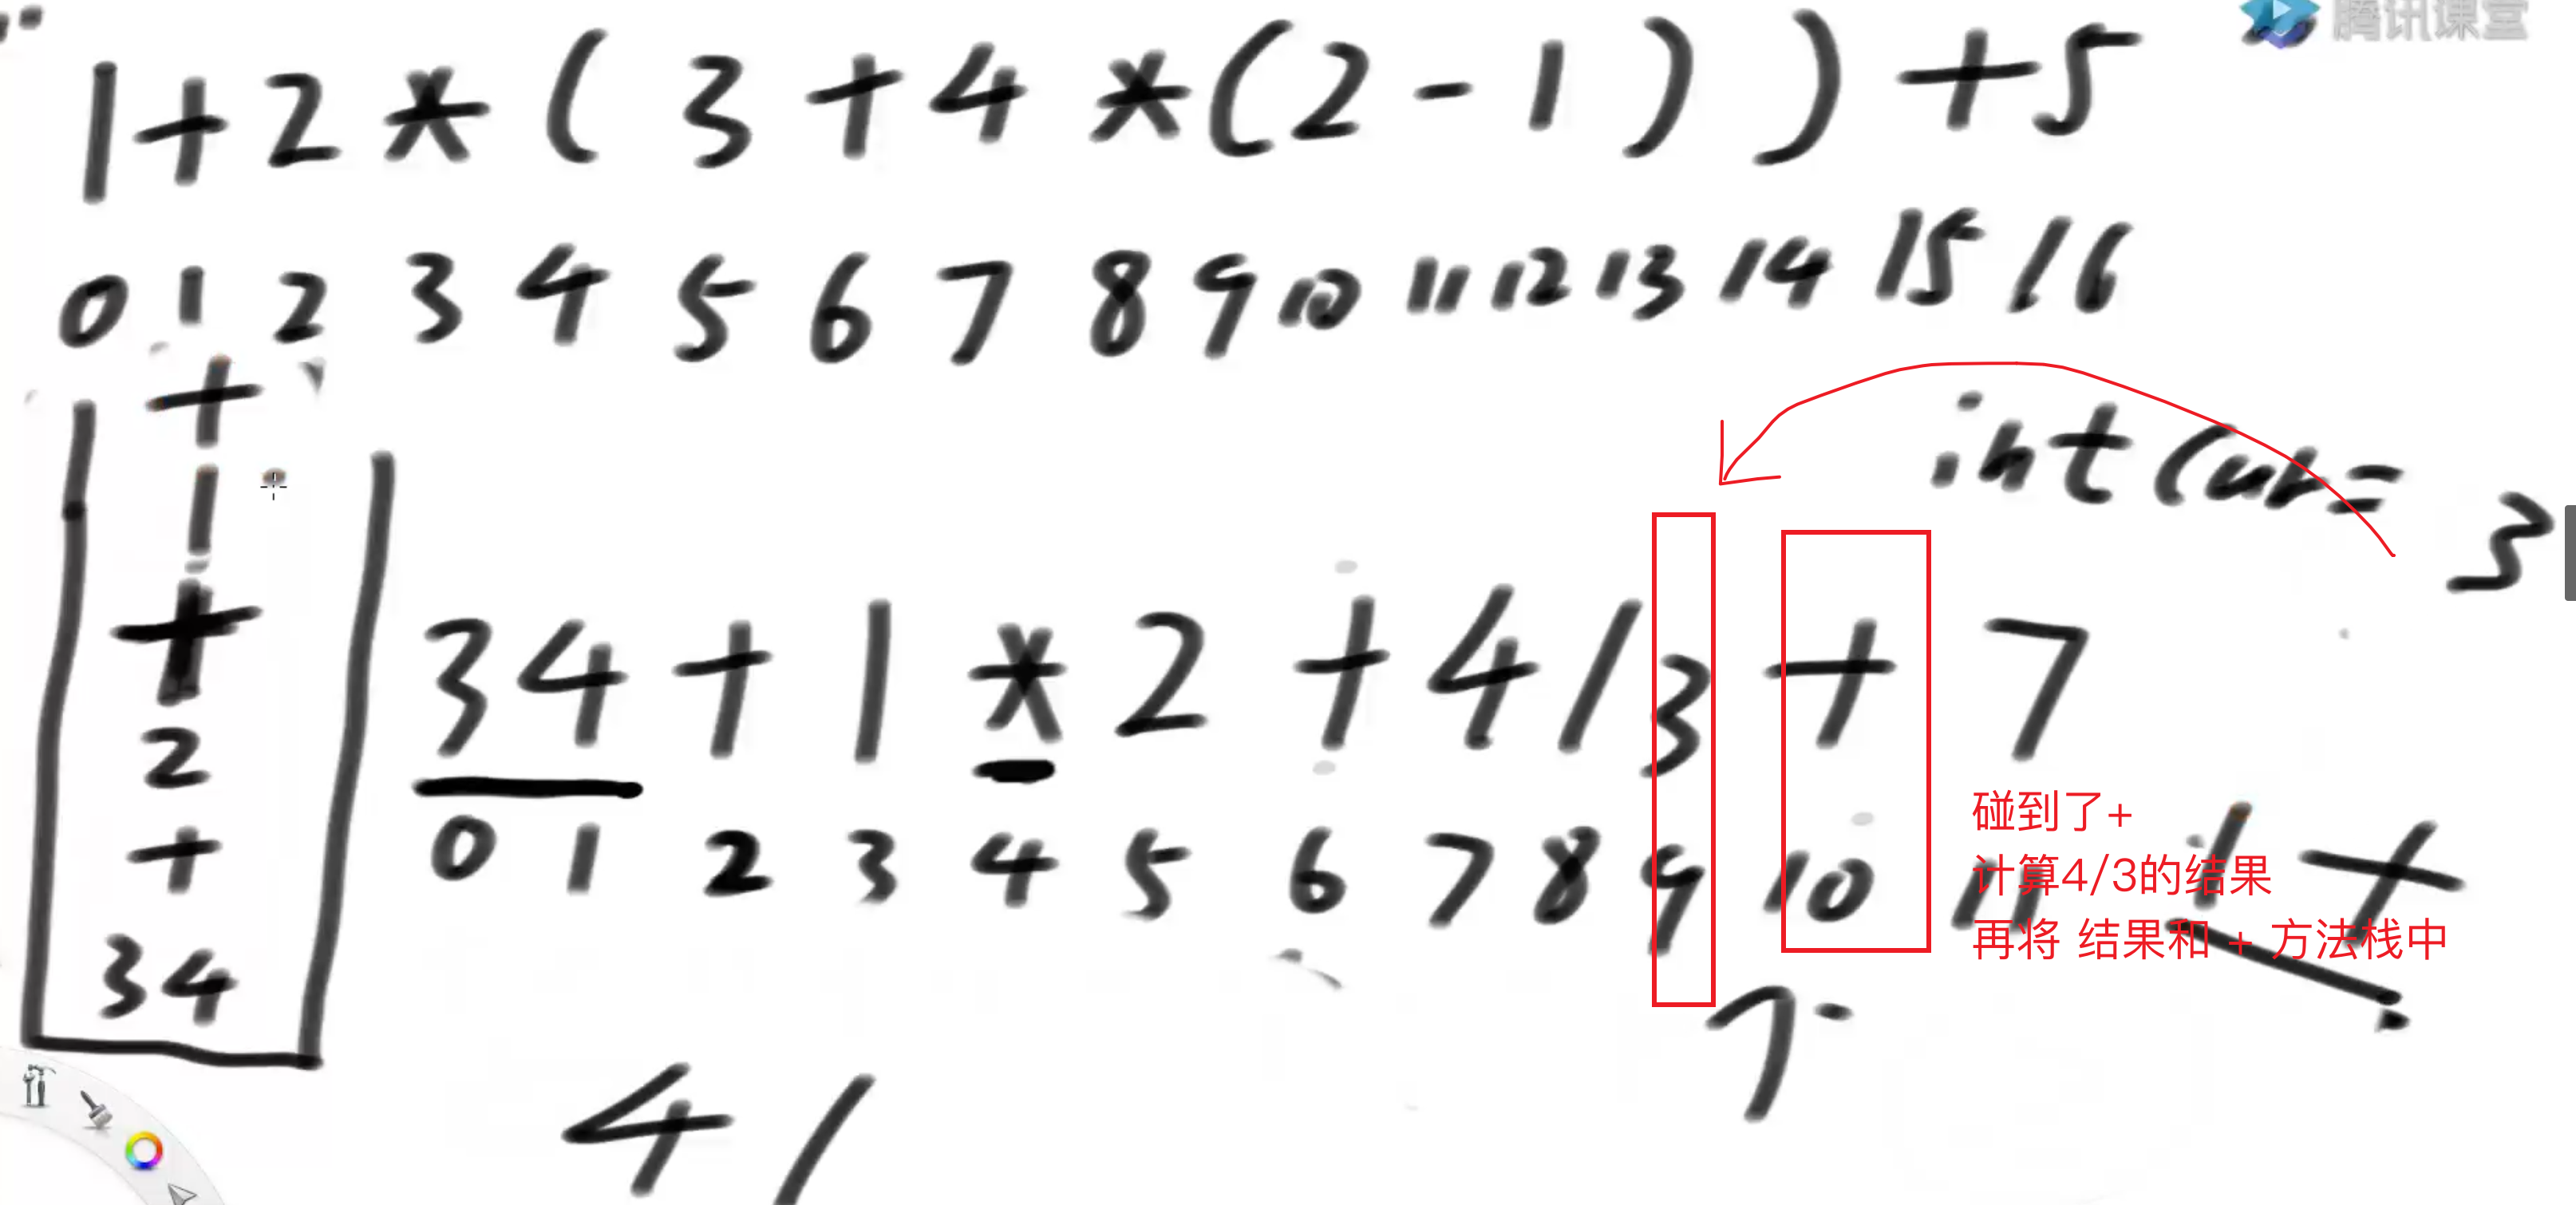 腾讯课堂
1+2*(3+4*(2-1))+5
0 1 2 3 4 5 6 7 8 9 10 11 12 13 14 15 16
int cur= 3
+
1
+
2
+
34
34+1*2+4/3+7
0 1 2 3 4 5 6 7 8 9 10 11
碰到了+
计算4/3的结果
再将 结果和 + 方法栈中
1 +
7
4 /